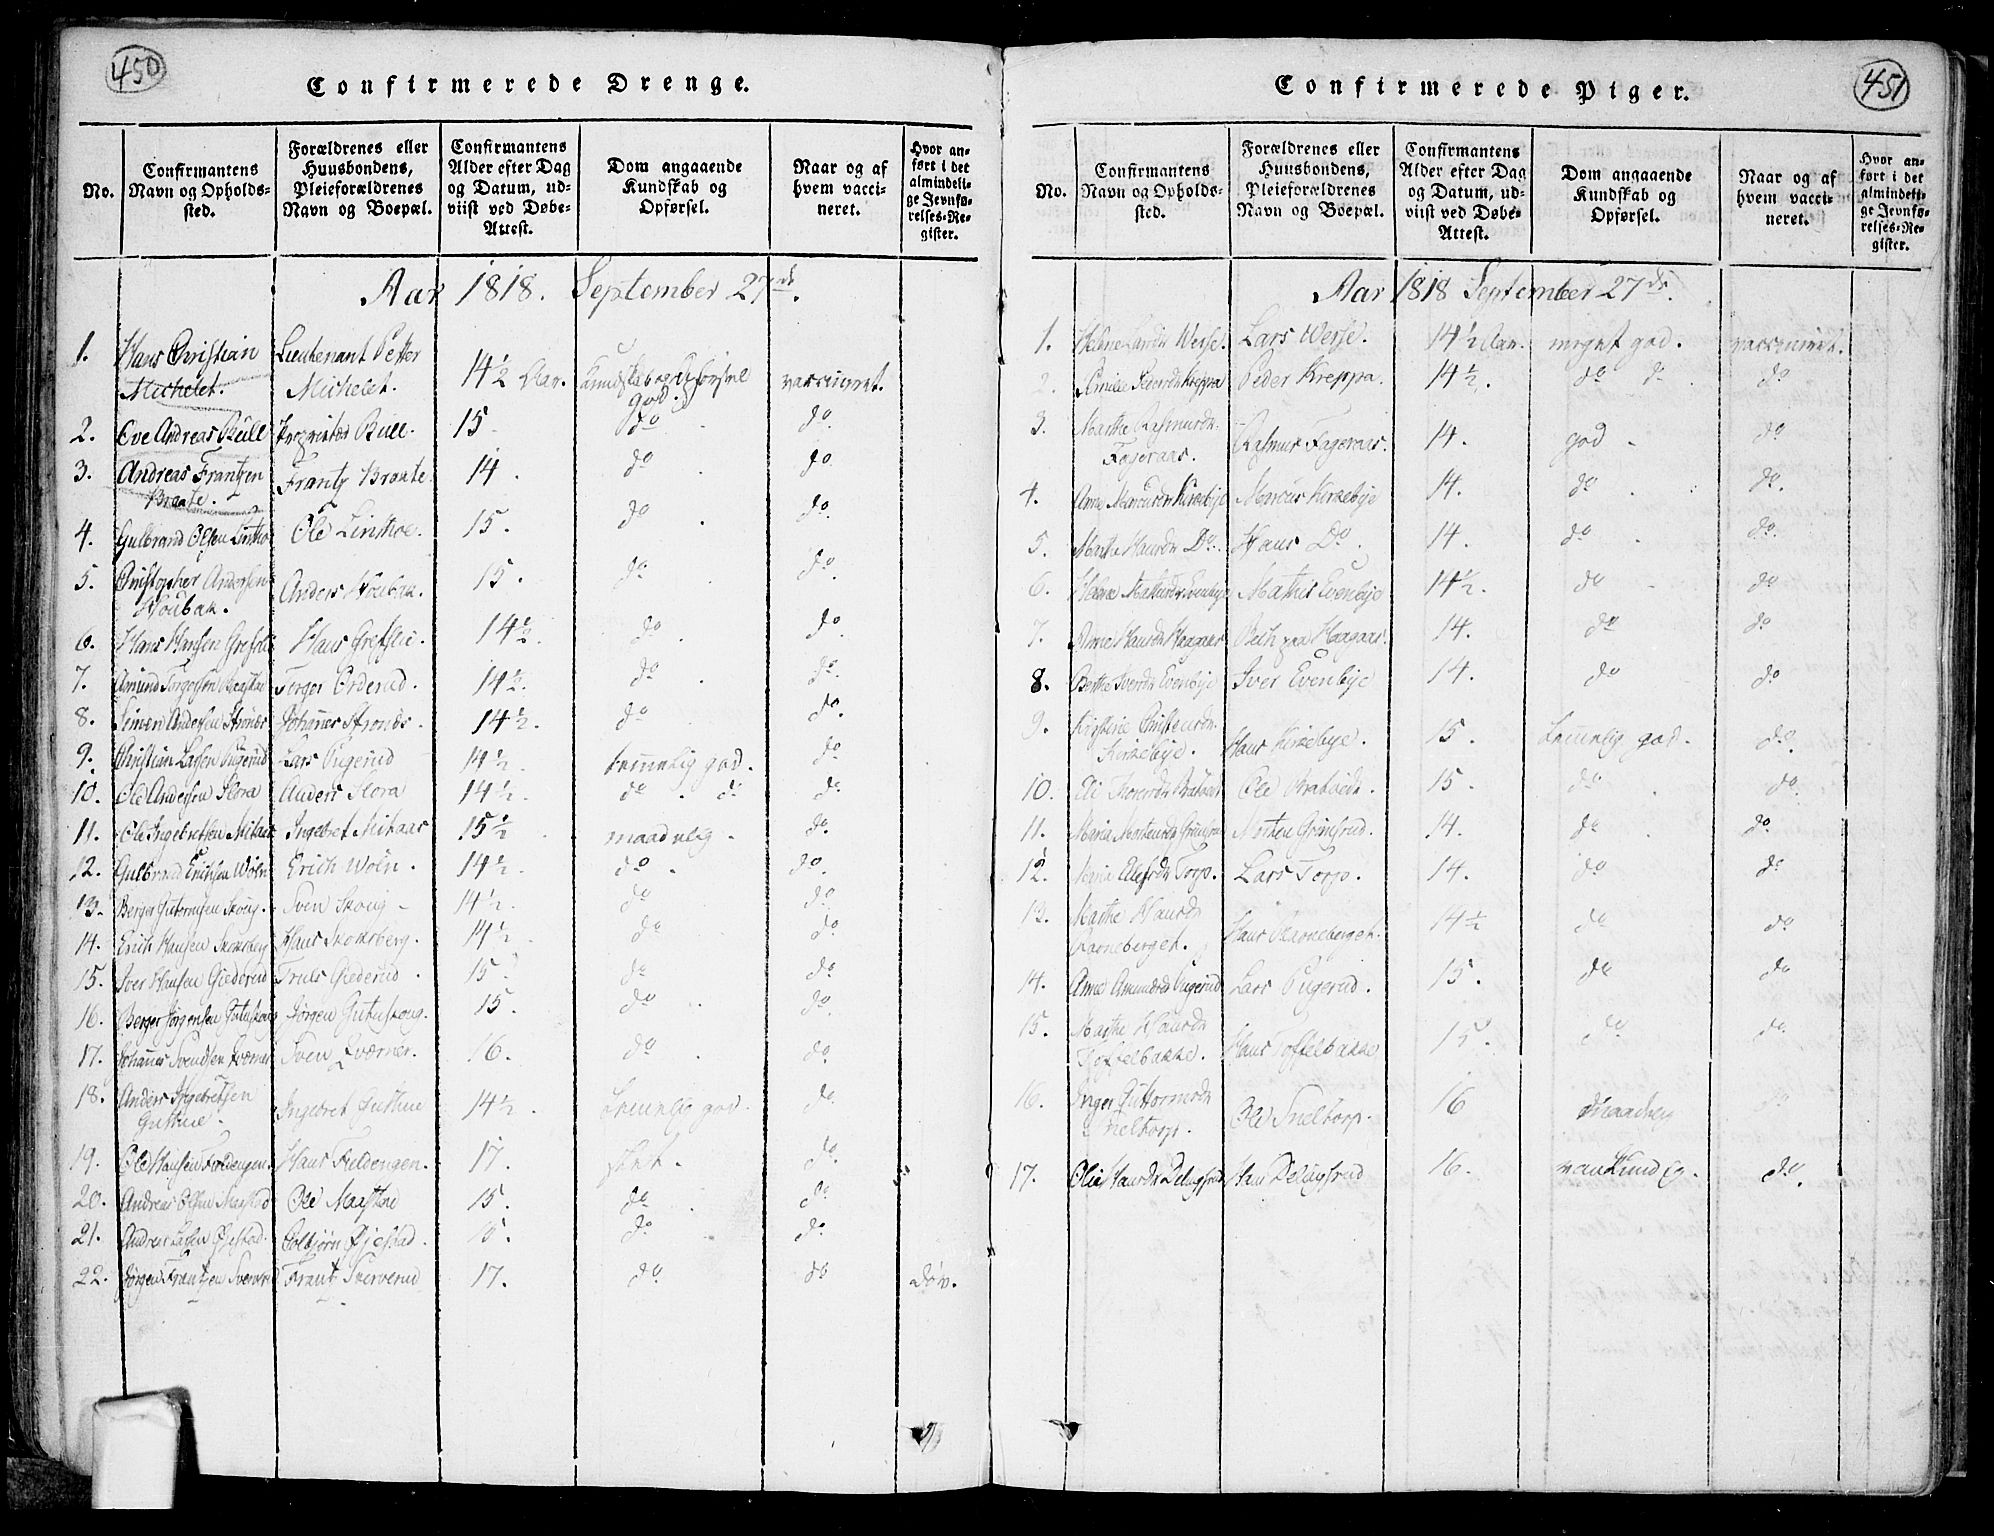 450
Confirmerede Drenge.
No.
Confirmantens Navn og Opholds-sted.
Forældrenes eller Huusbondens, Pleieforældrenes Navn og Boepæl.
Confirmantens Alder efter Dag og Datum, ud-viist ved Døbe-Attest.
Dom angaaende Kundskab og Opførsel.
Naar og af hvem vacci-neret.
Hvor an-ført i det almindeli-ge Jevnfø-relses-Re-gister.
Aar 1818. September 27de.
1. Hans Christian Michelet. Lieutenant Petter Michelet. 14½ Aar. Kundskab og Opførsel god. vaccineret.
2. Ove Andreas Bull Proprietær Bull. 15 do do.
3. Andreas Frantzen Braate. Frantz Braate. 14. do do.
4. Gulbrand Olsen Linthoe Ole Linthoe. 15. do do.
5. Christopher Andersen Houbak. Anders Houbak. 15. do do.
6. Hans Hansen Grefslie Hans Grefslie. 14½. do do.
7. Amund Torgersen Torger Orderud. 14½. do do.
8. Simen Andersen Strønes Johannes Strønes. 14½. do do.
9. Christian Larsen Pugerud Lars Pugerud 14½. temmelig god. do
10. Ole Andersen Flora Anders Flora 14½. do. do do.
11. Ole Ingebretsen Mitaas Ingebret Mitaas 15½ maadelig. do.
12. Gulbrand Erichsen Woln Erich Woln. 14½. do. do.
13. Berger Guttormsen Skoug. Sven Skoug 14½. do do.
14. Erich Hansen Skoksberg Hans Skoksberg. 14½. do. do
15. Iver Hansen Giederud Truls Giederud. 15. do do.
16. Berger Jørgensen Gutuskoug Jørgen Gutuskoug. 15. do do.
17. Johannes Svendsen Qværner Sven Qværner. 16. do do.
18. Anders Ingebretsen Guthue. Ingebret Guthue 14½. temmelig god. do.
19. Ole Hansen Foldengen. Hans Foldengen. 17. slet. do.
20. Andreas Olsen Maastad Ole Maastad 15. do do
21. Andreas Larsen Øjestad. Colbjørn Øjestad. 15. do do.
22. Jørgen Frantzen Sververud Frantz Sververud 17. do do døv.
451
Confirmerede Piger.
No.
Confirmantens Navn og Opholds-sted.
Forældrenes eller Huusbondens, Pleieforældrenes Navn og Boepæl.
Confirmantens Alder efter Dag og Datum, ud-viist ved Døbe-Attest.
Dom angaaende Kundskab og Opførsel.
Naar og af hvem vacci-neret.
Hvor an-ført i det almindeli-ge Jevnfø-relses-Re-gister.
Aar 1818 September 27de.
1. Helene Larsdr Werse. Lars Werse. 14½ Aar. meget god. vaccineret.
2. Pedersdr Kreppa Peder Kreppa. 14½. do do. do
3. Marthe Rasmusdr. Fageraas. Rasmus Fageraas. 14. god do
4. Anne Marcusdr Kirkebye Marcus Kirkebye 14. do. do.
5. Marthe Hansdr Do. Hans Do. 14. do do.
6. Helene Mathisdr Evenbye Mathis Evenbye 14½. do do
7. Anne Hansdr Haagaas Beth paa Haagaas. 14. do do
8. Berthe Iversdr Evenbye Iver Evenbye 14. do do
9. Kirstine Christensdr. Kirkebye. Hans Kirkebye. 15. temmelig god. do.
10. Ole 15. do do.
11. Maria Mortensdr Grimsrud Morten Grimsrud. 14. do do.
12. Torp. Lars Torp. 14. do do
13. Marthe Hansdr Ravneberget. Hans Ravneberget. 14½ do do.
14. Anne Amundsdr Pugerud Lars Pugerud. 15. do do
15. Marthe Hansdr Toffelbakke. Hans Toffelbakke 15. do do.
16. Inger Guttormsdr Sneltorp. Ole Sneltorp. 16 maadelig do
17. Olie Hansdr Delugsrud Hans Delugsrud 16. vankundig. do.